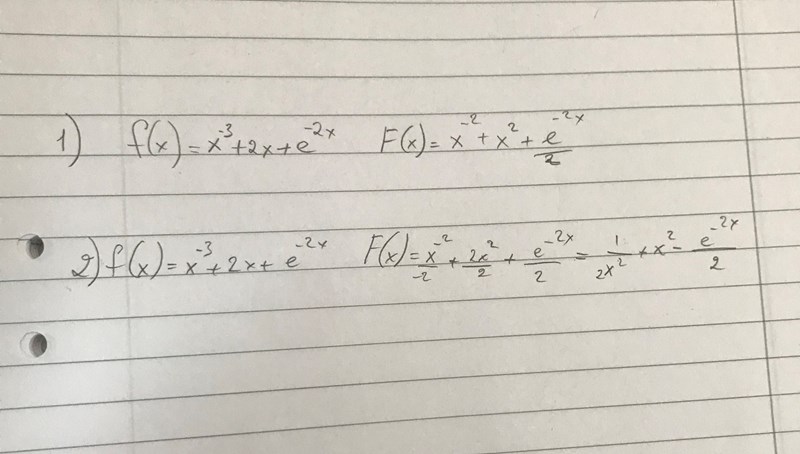 1) f(x) = x⁻³ + 2x + e⁻²ˣ F(x) = x⁻² + x² + e⁻²ˣ/2
2) f(x) = x⁻³ + 2x + e⁻²ˣ F(x) = x⁻²/-2 + 2x²/2 + e⁻²ˣ/2 = 1/2x² + x² - e⁻²ˣ/2